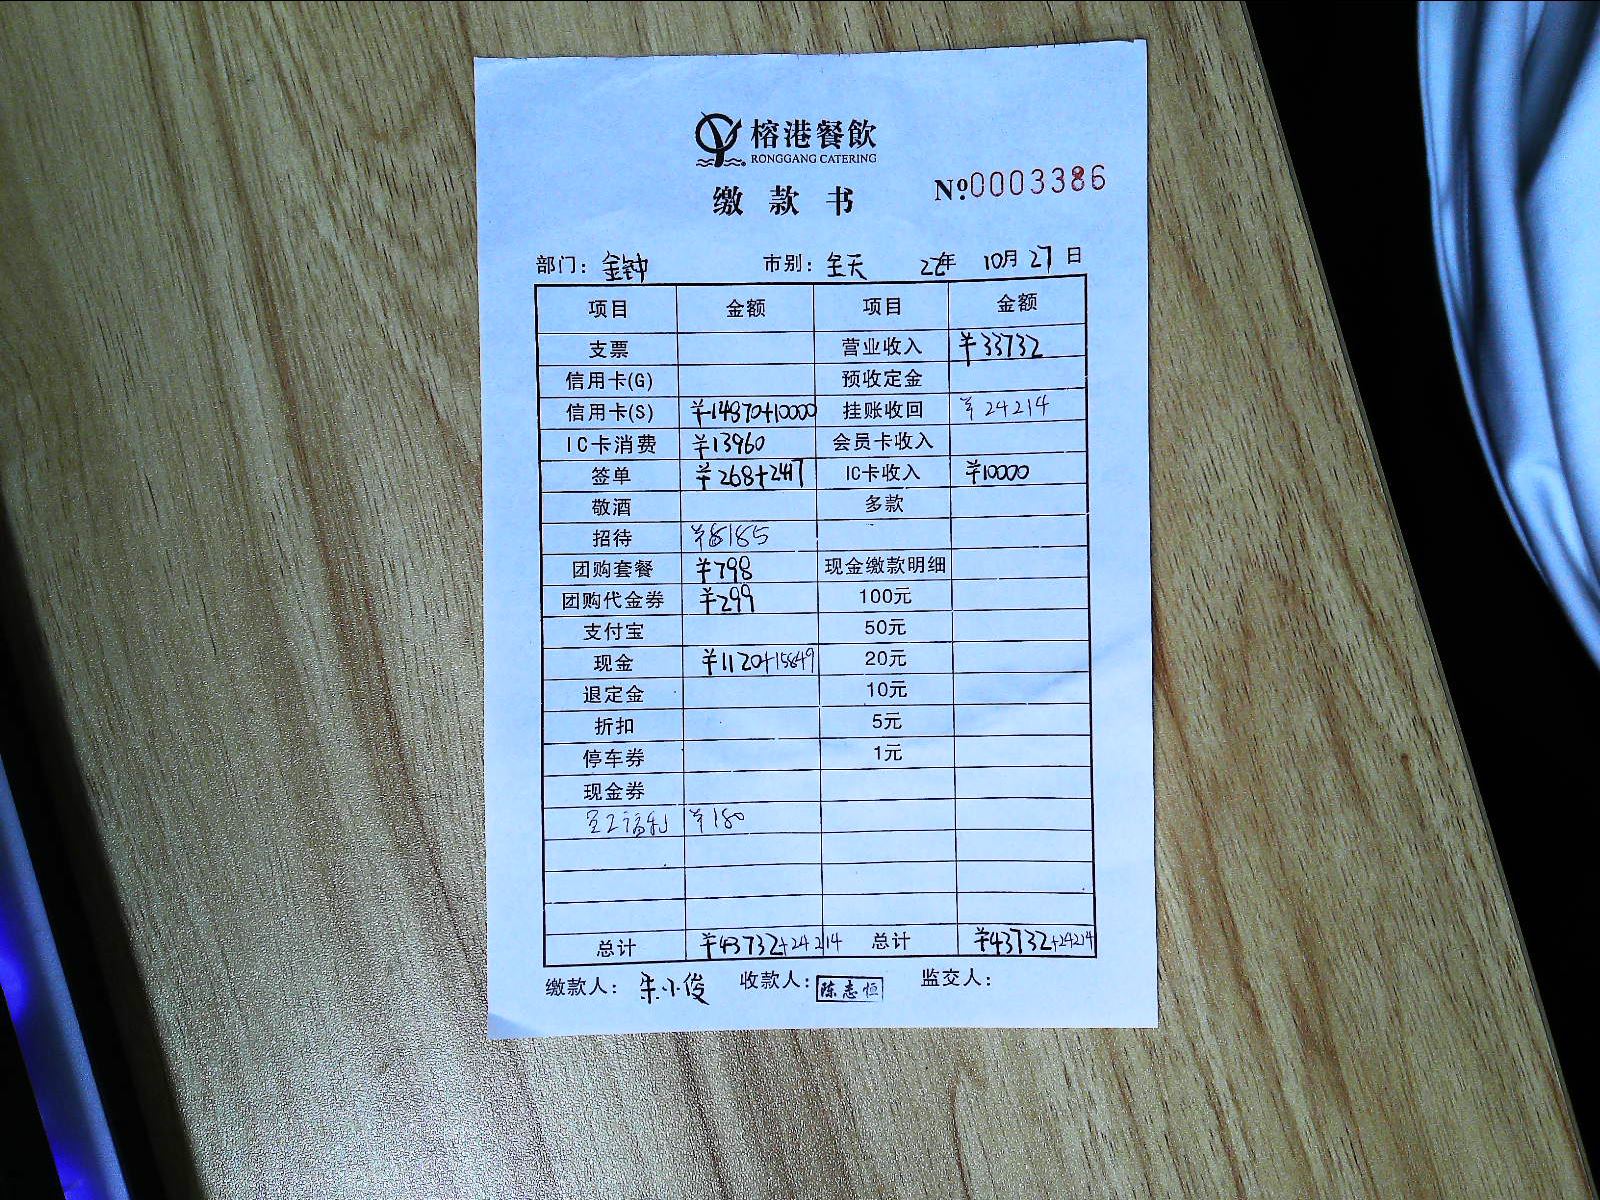 榕港餐飲
RONGGANG CATERING
缴款书
№0003386
部门: 金钟 市别: 全天 22年 10月27日
项目 金额 项目 金额
支票 营业收入 ¥33732
信用卡(G) 预收定金
信用卡(S) ¥14870+10000 挂账收回 ¥24214
IC卡消费 ¥13960 会员卡收入
签单 ¥268+2417 IC卡收入 ¥10000
敬酒 多款
招待 ¥8185
团购套餐 ¥798 现金缴款明细
团购代金券 ¥299 100元
支付宝 50元
现金 ¥1120+15849 20元
退定金 10元
折扣 5元
停车券 1元
现金券
员工福利 ¥180
总计 ¥43732+24214 总计 ¥43732+24214
缴款人: 朱小俊 收款人: 陈志恒 监交人: